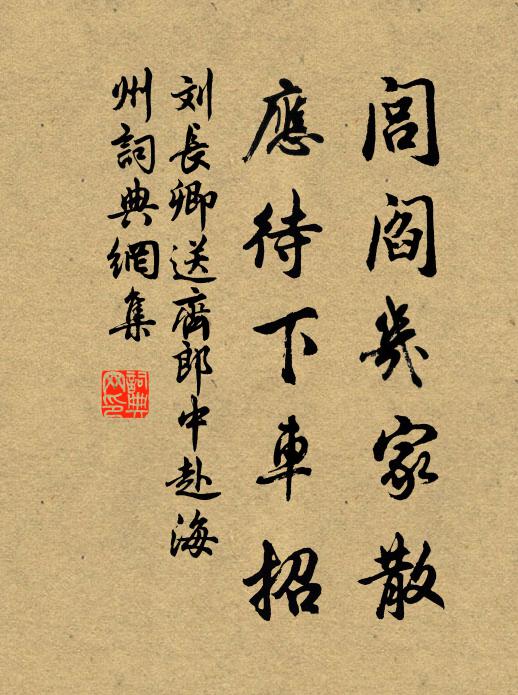 閭閻幾家散
應待下車招
刘長卿送齊郎中赴海
州詞典網集
詞典
网印